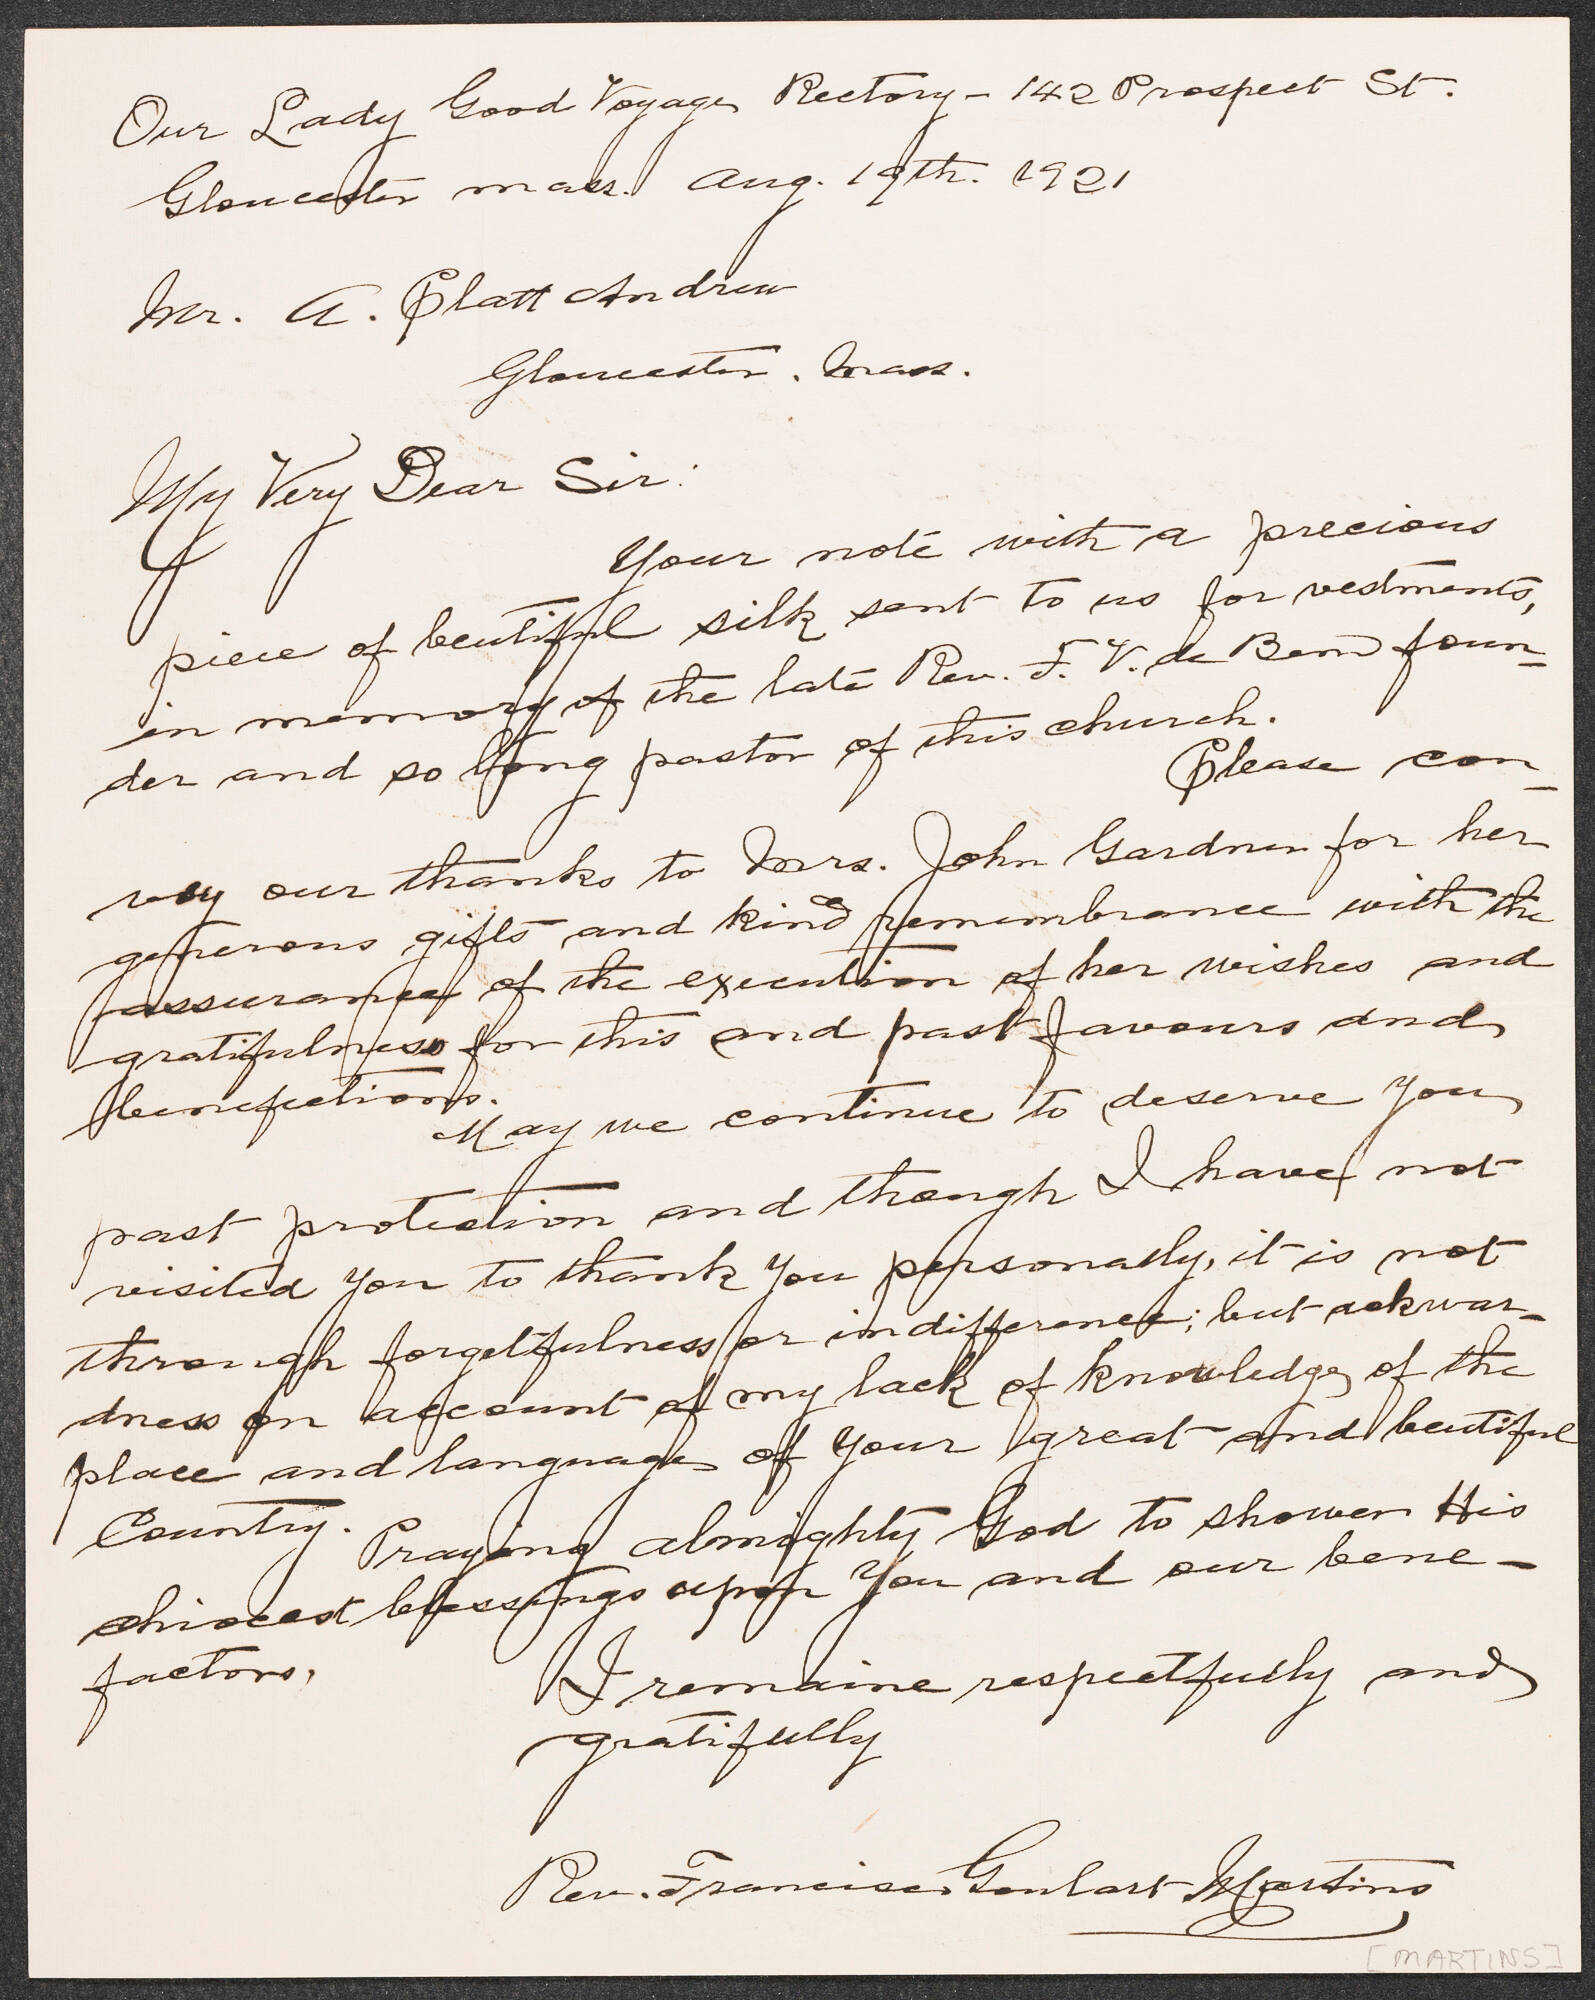 Our Lady Good Voyage Rectory - 142 Prospect St.
Gloucester Mass. Aug. 19th. 1921
Mr. A. Platt Andrew
Gloucester. Mass.
My Very Dear Sir:
Your note with a precious
piece of beutiful silk sent to us for vestments,
in memory of the late Rev. F. V. de Bem foun-
der and so long pastor of this church.
Please con-
vey our thanks to Mrs. John Gardner for her
generous gifts and kind remembrance with the
assurance of the execution of her wishes and
gratifulness for this and past favours and
benefections.
May we continue to deserve you
past protection and though I have not
visited you to thank you personally, it is not
through forgetfulness or indifference; but ackwar-
dness on account of my lack of knowledge of the
place and language of your great and beutiful
Country.
Praying almighty God to shower His
chiocest blessings upon you and our bene-
factors,
I remaine respectfully and
gratifully
Rev. Francisco Goulart Martins
[MARTINS]